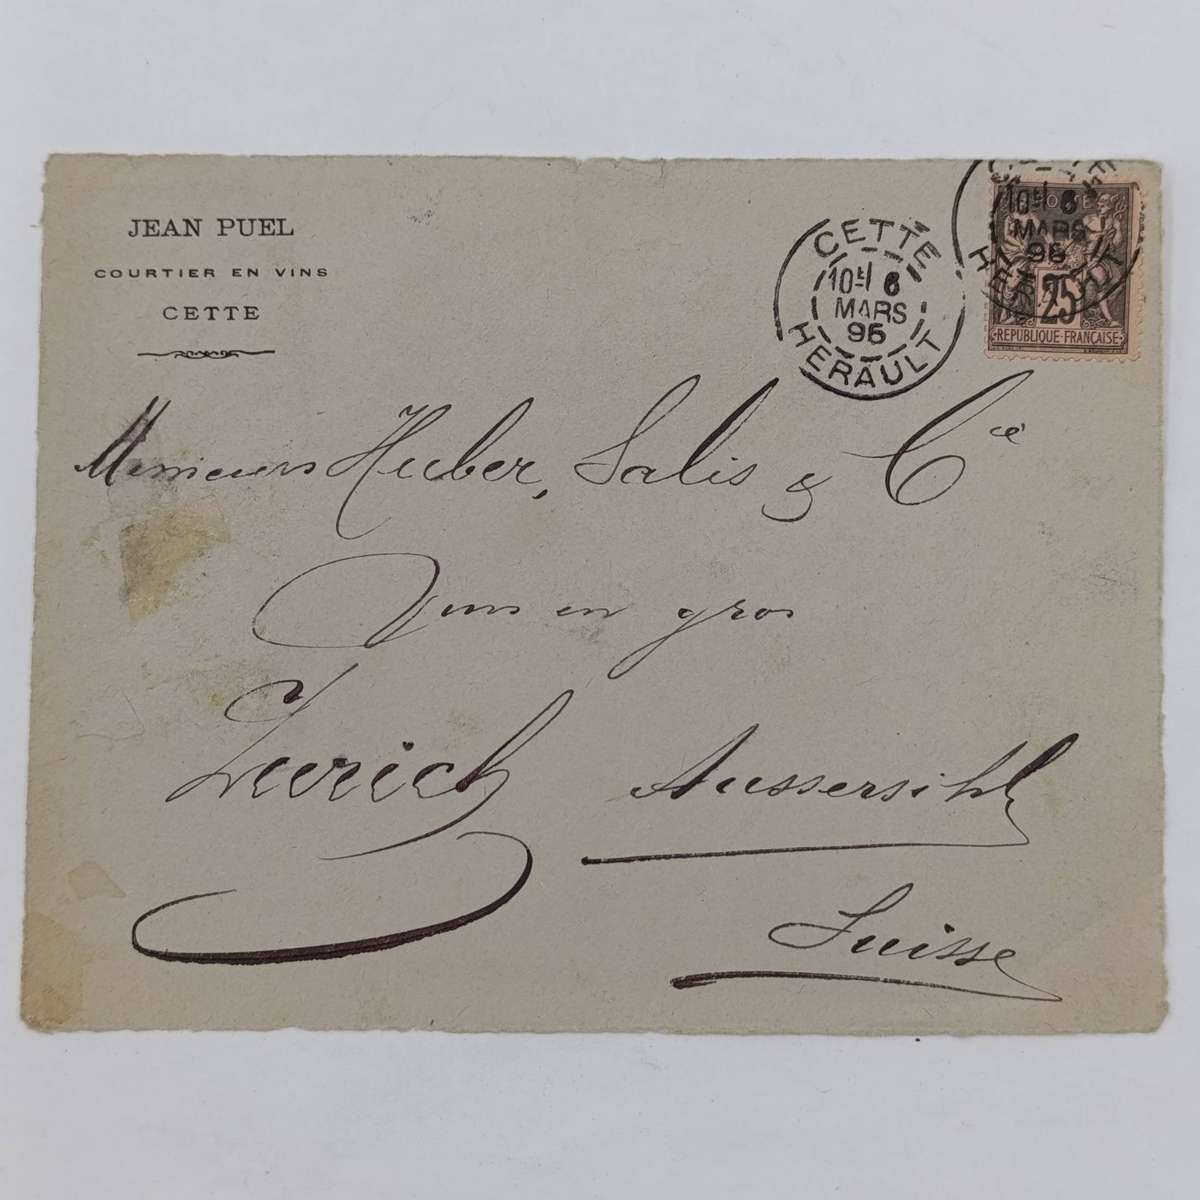 JEAN PUEL
COURTIER EN VINS
CETTE
CETTE
10E 6
MARS
95
HERAULT
CETTE
10E 6
MARS
95
HERAULT
25
REPUBLIQUE FRANÇAISE
Messieurs Huber, Salis & Cie
Vins en gros
Zurich Aussersihl
Suisse